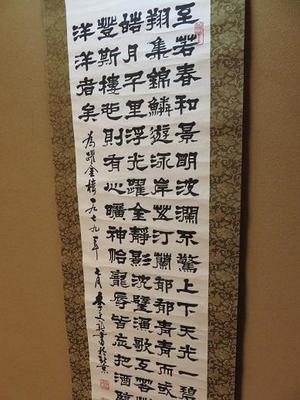 至若春和景明波瀾不驚上下天光一碧
翔集錦鱗遊泳岸芷汀蘭郁郁青青而或
皓月千里浮光躍金靜影沈璧漁歌互答
登斯樓也則有心曠神怡寵辱皆忘把酒臨
洋洋者矣 為躍金樓 一九七九年七月 李 書於北京